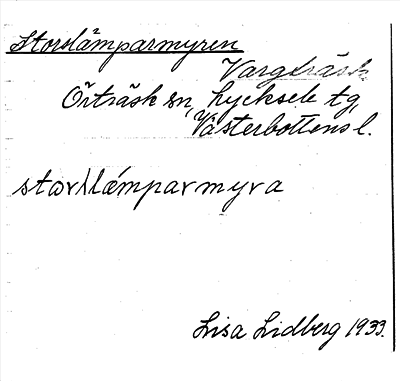 Storslåmparmyren
Vargträsk
Örträsk sn, Lycksele tg
Västerbottens l.
Lisa Lidberg 1933.